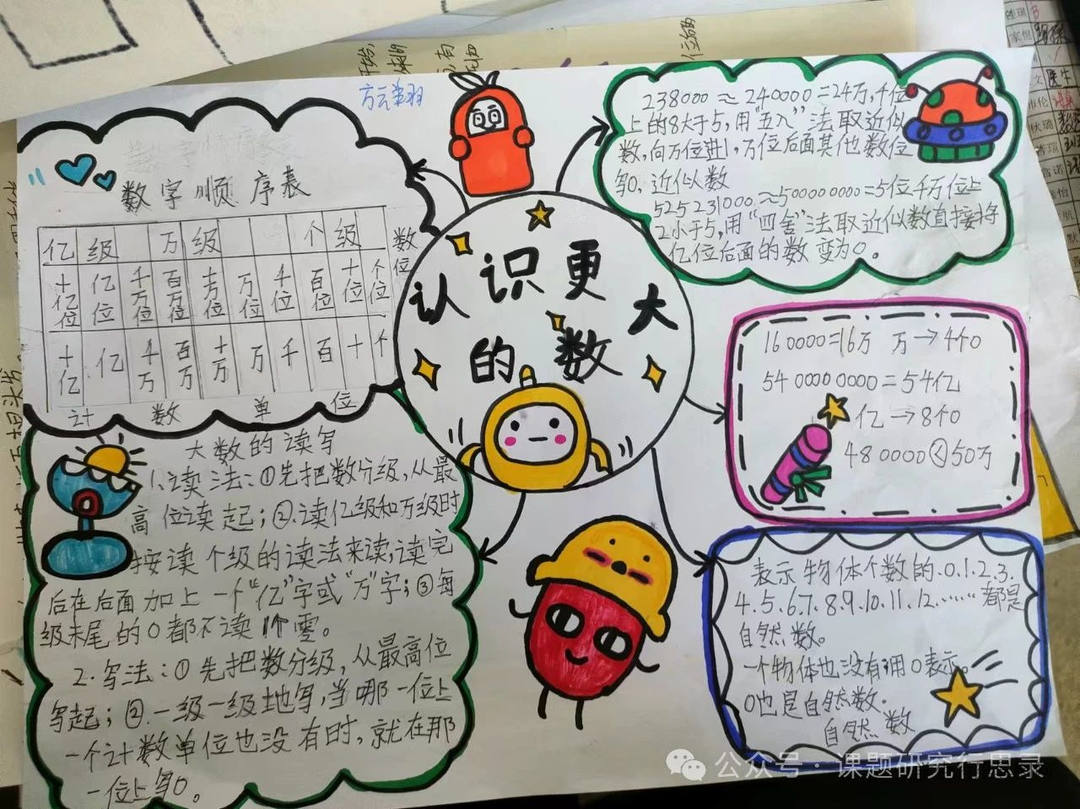 认识更大
的数
数字顺序表
亿级 万级 个级 数位
十亿位 亿位 千万位 百万位 十万位 万位 千位 百位 十位 个位
十亿 亿 千万 百万 十万 万 千 百 十 个
计数单位
大数的读写
1.读法:①先把数分级,从最
高位读起;②.读亿级和万级时
按读个级的读法来读,读完
后在后面加上一个“亿”字或“万”字;③每
级末尾的0都不读1个零。
2.写法:①先把数分级,从最高位
写起;②.一级一级地写,当哪一位上
一个计数单位也没有时,就在那
一位上写0。
238000≈240000=24万,千位
上的8大于5,用“五入”法取近似
数,向万位进1,万位后面其他数位
写0,近似数
525231000≈500000000=5位千万位上
2小于5,用“四舍”法取近似数直接将
亿位后面的数变为0。
160000=16万 万→4个0
5400000000=54亿
亿→8个0
480000<50万
表示物体个数的.0.1.2.3.
4.5.6.7.8.9.10.11.12.……都是
自然数。
一个物体也没有用0表示
0也是自然数.
自然数
公众号·课题研究行思录